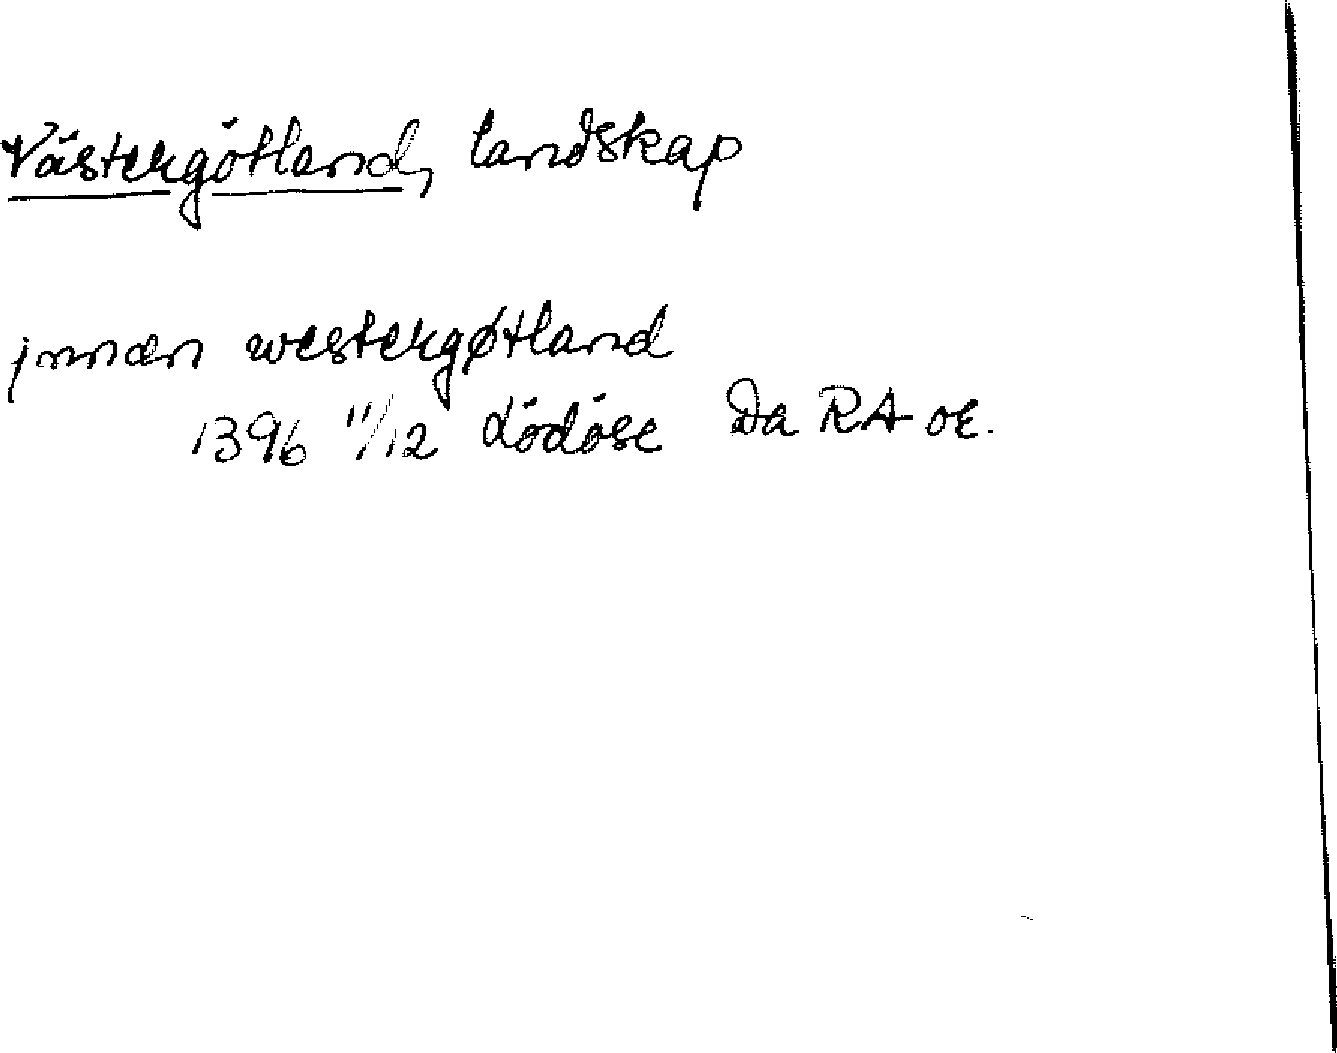 Västergötland, landskap
jnnæn westergøtland
1396 11/12 Lödöse Da RA or.